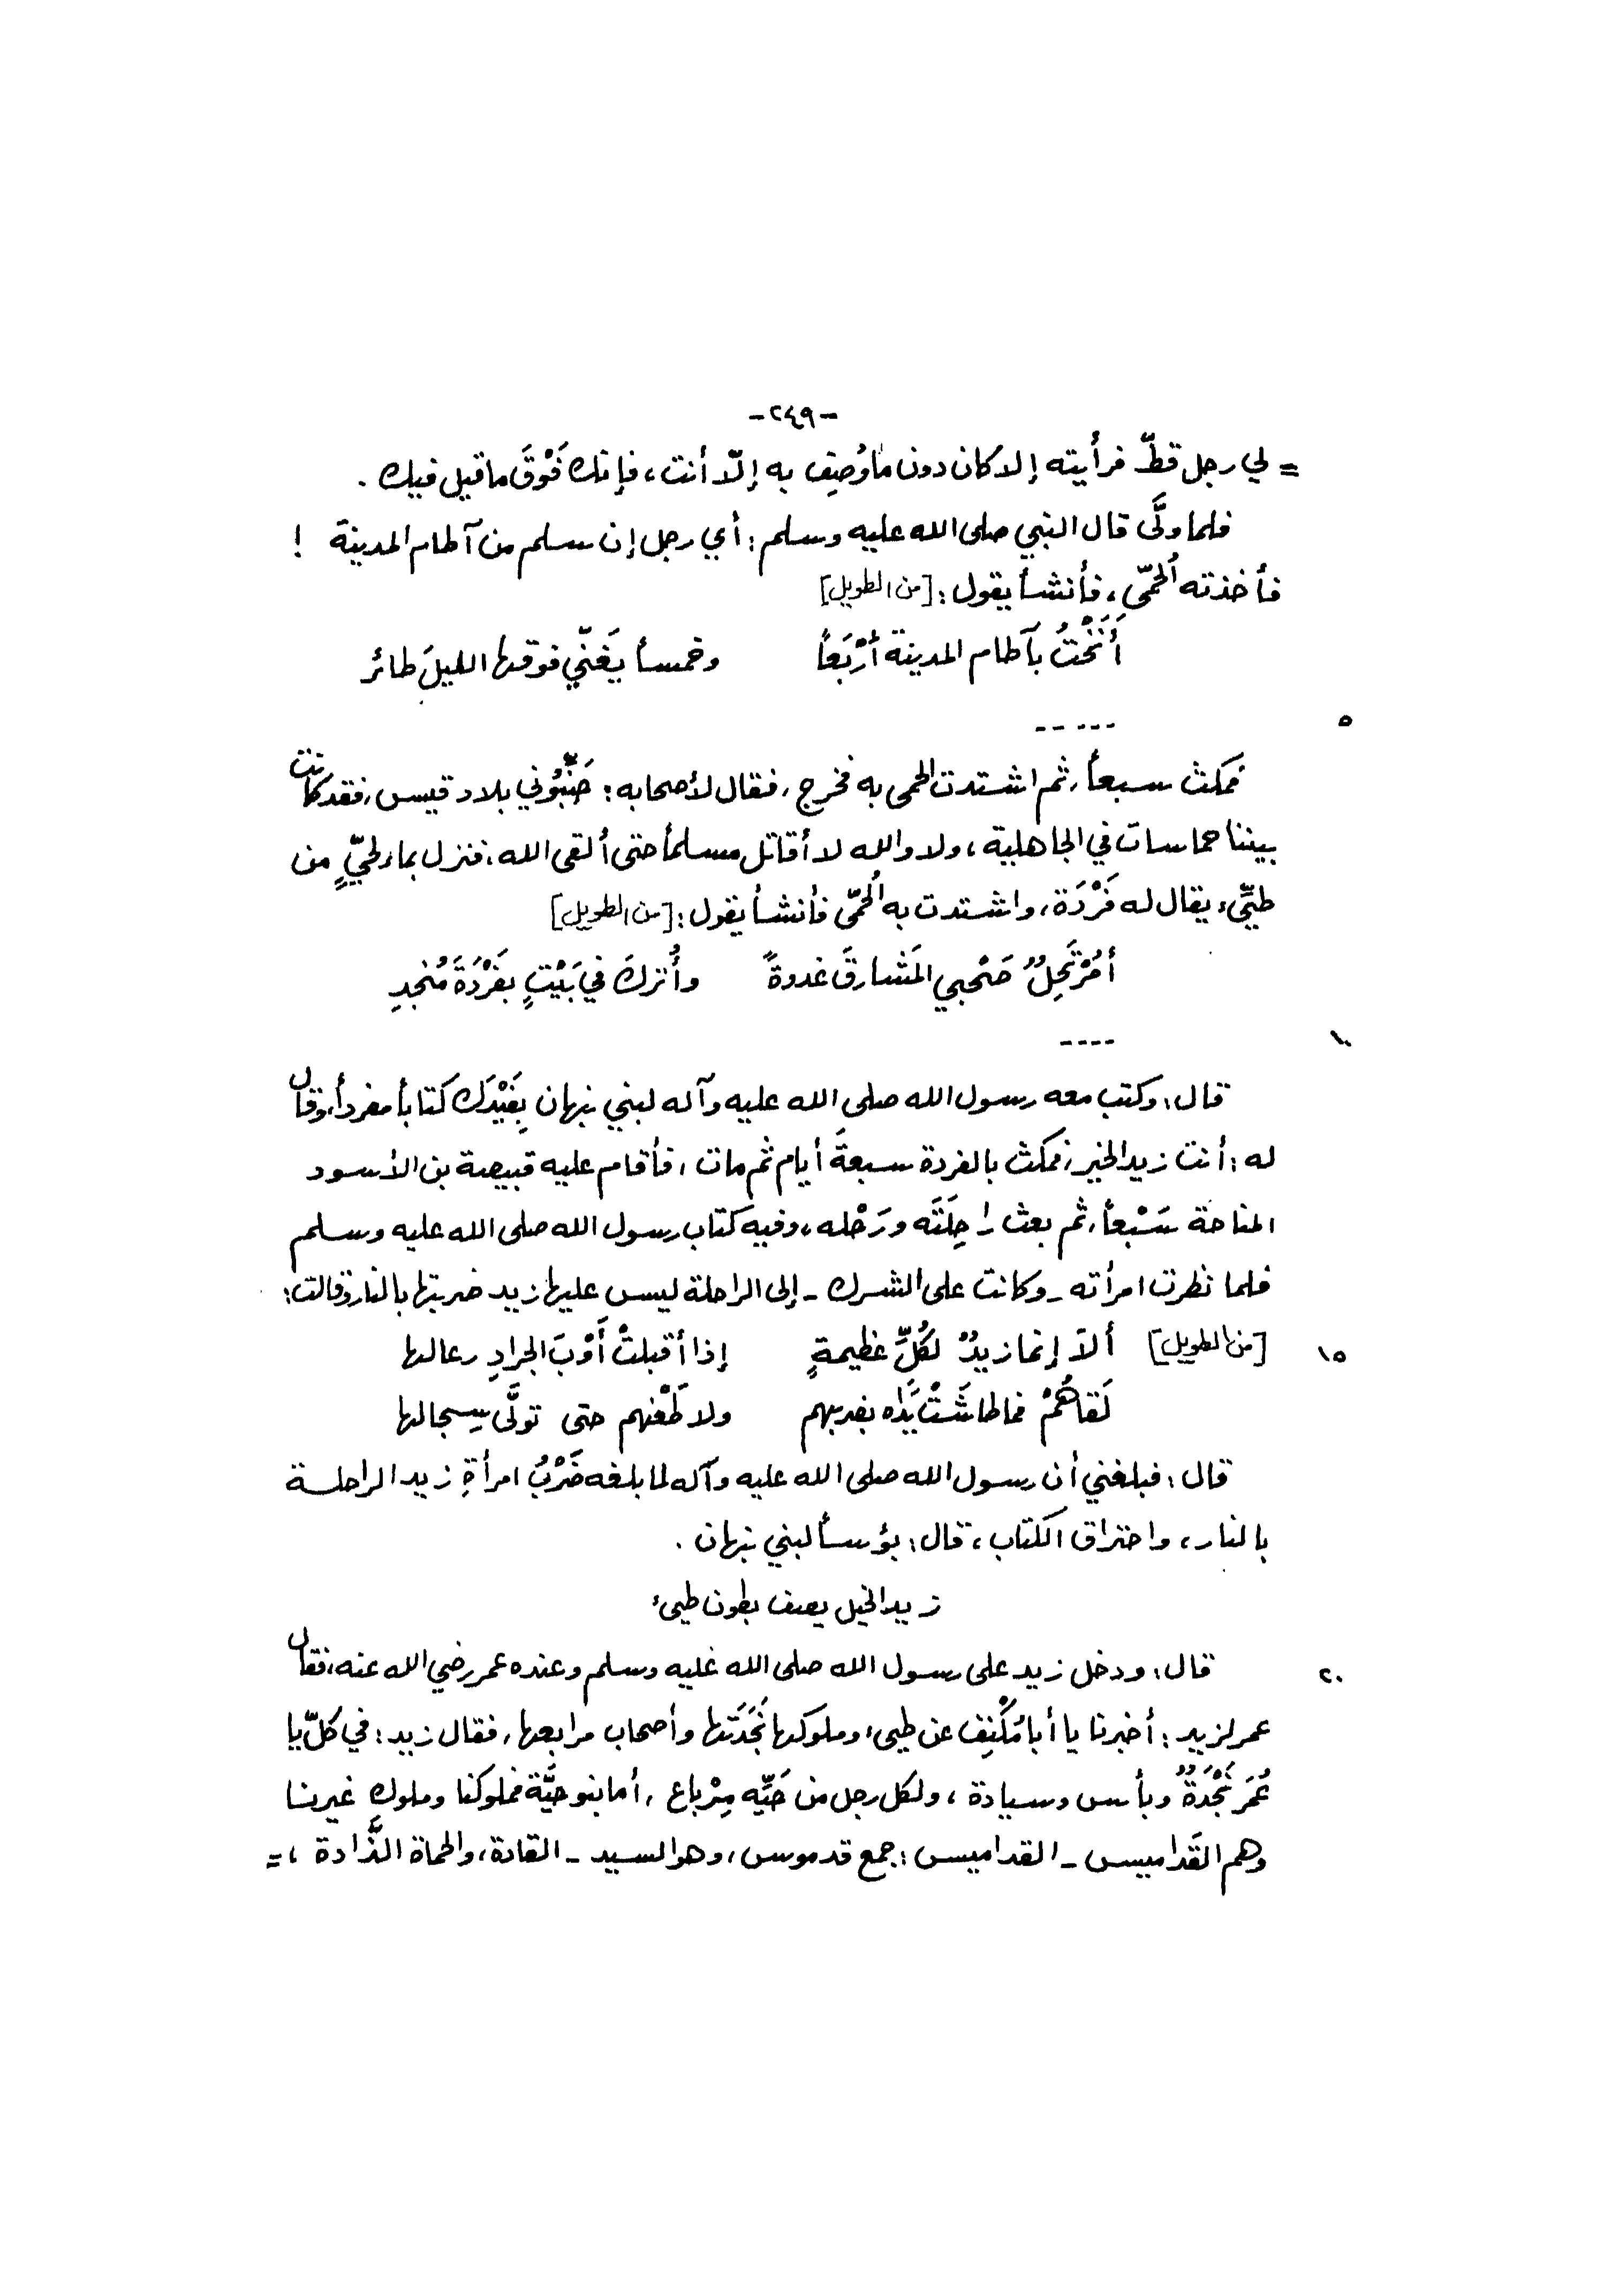 -٢٤٩-
= لي رجل قطّ فرأيته إلا كان دون ما وُصِف به إلّا أنت، فإنك فَوْقَ ما قيل فيك.
فلما ولَّى قال النبي صلى الله عليه وسلم: أي رجل إن سلم من آطام المدينة !
فأخذته الحُمّى، فأنشأ يقول: [من الطويل]
أَنَخْتُ بآطام المدينة أرْبَعاً وخمساً يَغَنّي فوقها الليلَ طائر
٥ -----
فمكث سبعاً، ثم اشتدت الحمى به فخرج، فقال لأصحابه: جَنِّبُوني بلاد قيس، فقد كانت
بيننا حماسات في الجاهلية، ولا والله لا أقاتل مسلماً حتى ألقى الله، فنزل بماء لحيٍّ من
طيّيء يقال له فَرْدَة، واشتدت به الحُمّى فأنشأ يقول: [من الطويل]
أمُرْتَحِلٌ صَحْبي المَشارقَ غدوةً وأُتركَ في بَيْتٍ بفَرْدَةَ مُنْجدِ
١٠ ----
قال: وكتب معه رسول الله صلى الله عليه وآله لبني نبهان بِفَيْدَك كتاباً مفرداً، وقال
له: أنت زيد الخير، فمكث بالفردة سبعةَ أيام ثم مات، فأقام عليه قبيصة بن الأسود
المناحة سَبْعاً، ثم بعث راحِلَتَه ورَحْله، وفيه كتاب رسول الله صلى الله عليه وسلم
فلما نظرت امرأته - وكانت على الشرك - إلى الراحلة ليس عليها زيد ضربتها بالنار وقالت:
١٥ [من الطويل] ألا إنما زيدٌ لكُلِّ عظيمةٍ إذا أقبلتْ أَوْبَ الجرادِ رعالها
لَقاهُمْ فما طاشَتْ يَدَاه بضربهم ولا طَعْنهم حتى تولَّى سِجالها
قال: فبلغني أن رسول الله صلى الله عليه وآله لما بلغه ضَرْبُ امرأةِ زيد الراحلة
بالنار، واحتراق الكتاب، قال: بؤساً لبني نبهان.
زيد الخيل يصف بطون طيىء
٢٠ قال: ودخل زيد على رسول الله صلى الله عليه وسلم وعنده عمر رضي الله عنه، فقال
عمر لزيد: أخبرنا يا أبا مُكْنِف عن طيىء وملوكها نَجْدَتها وأصحاب مرابعها، فقال زيد: في كلّ يا
عُمَر نَجْدَةٌ وبأس وسيادة، ولكل رجل من حَيِّه مِرْباع، أما بنو حيَّة فملوكنا وملوك غيرنا
وهم القَداميس - القداميس: جمع قدموس، وهو السيد - القادة، والحماة الذَّادة، =